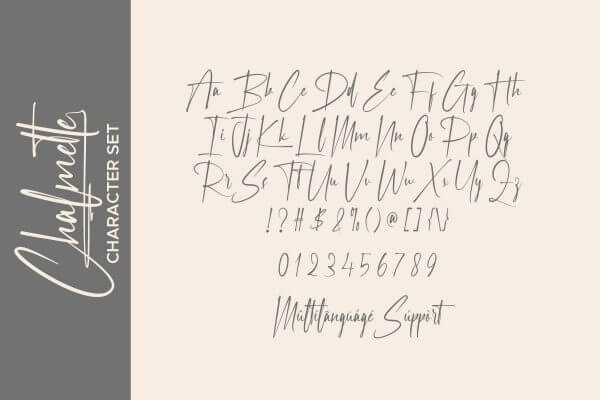 Chalmette
CHARACTER SET
Aa Bb Cc Dd Ee Ff Gg Hh
Ii Jj Kk Ll Mm Nn Oo Pp Qq
Rr Ss Tt Uu Vv Ww Xx Yy Zz
!?#$&%()@[]{\}
0123456789
Mûltilãnguágé Sùppört